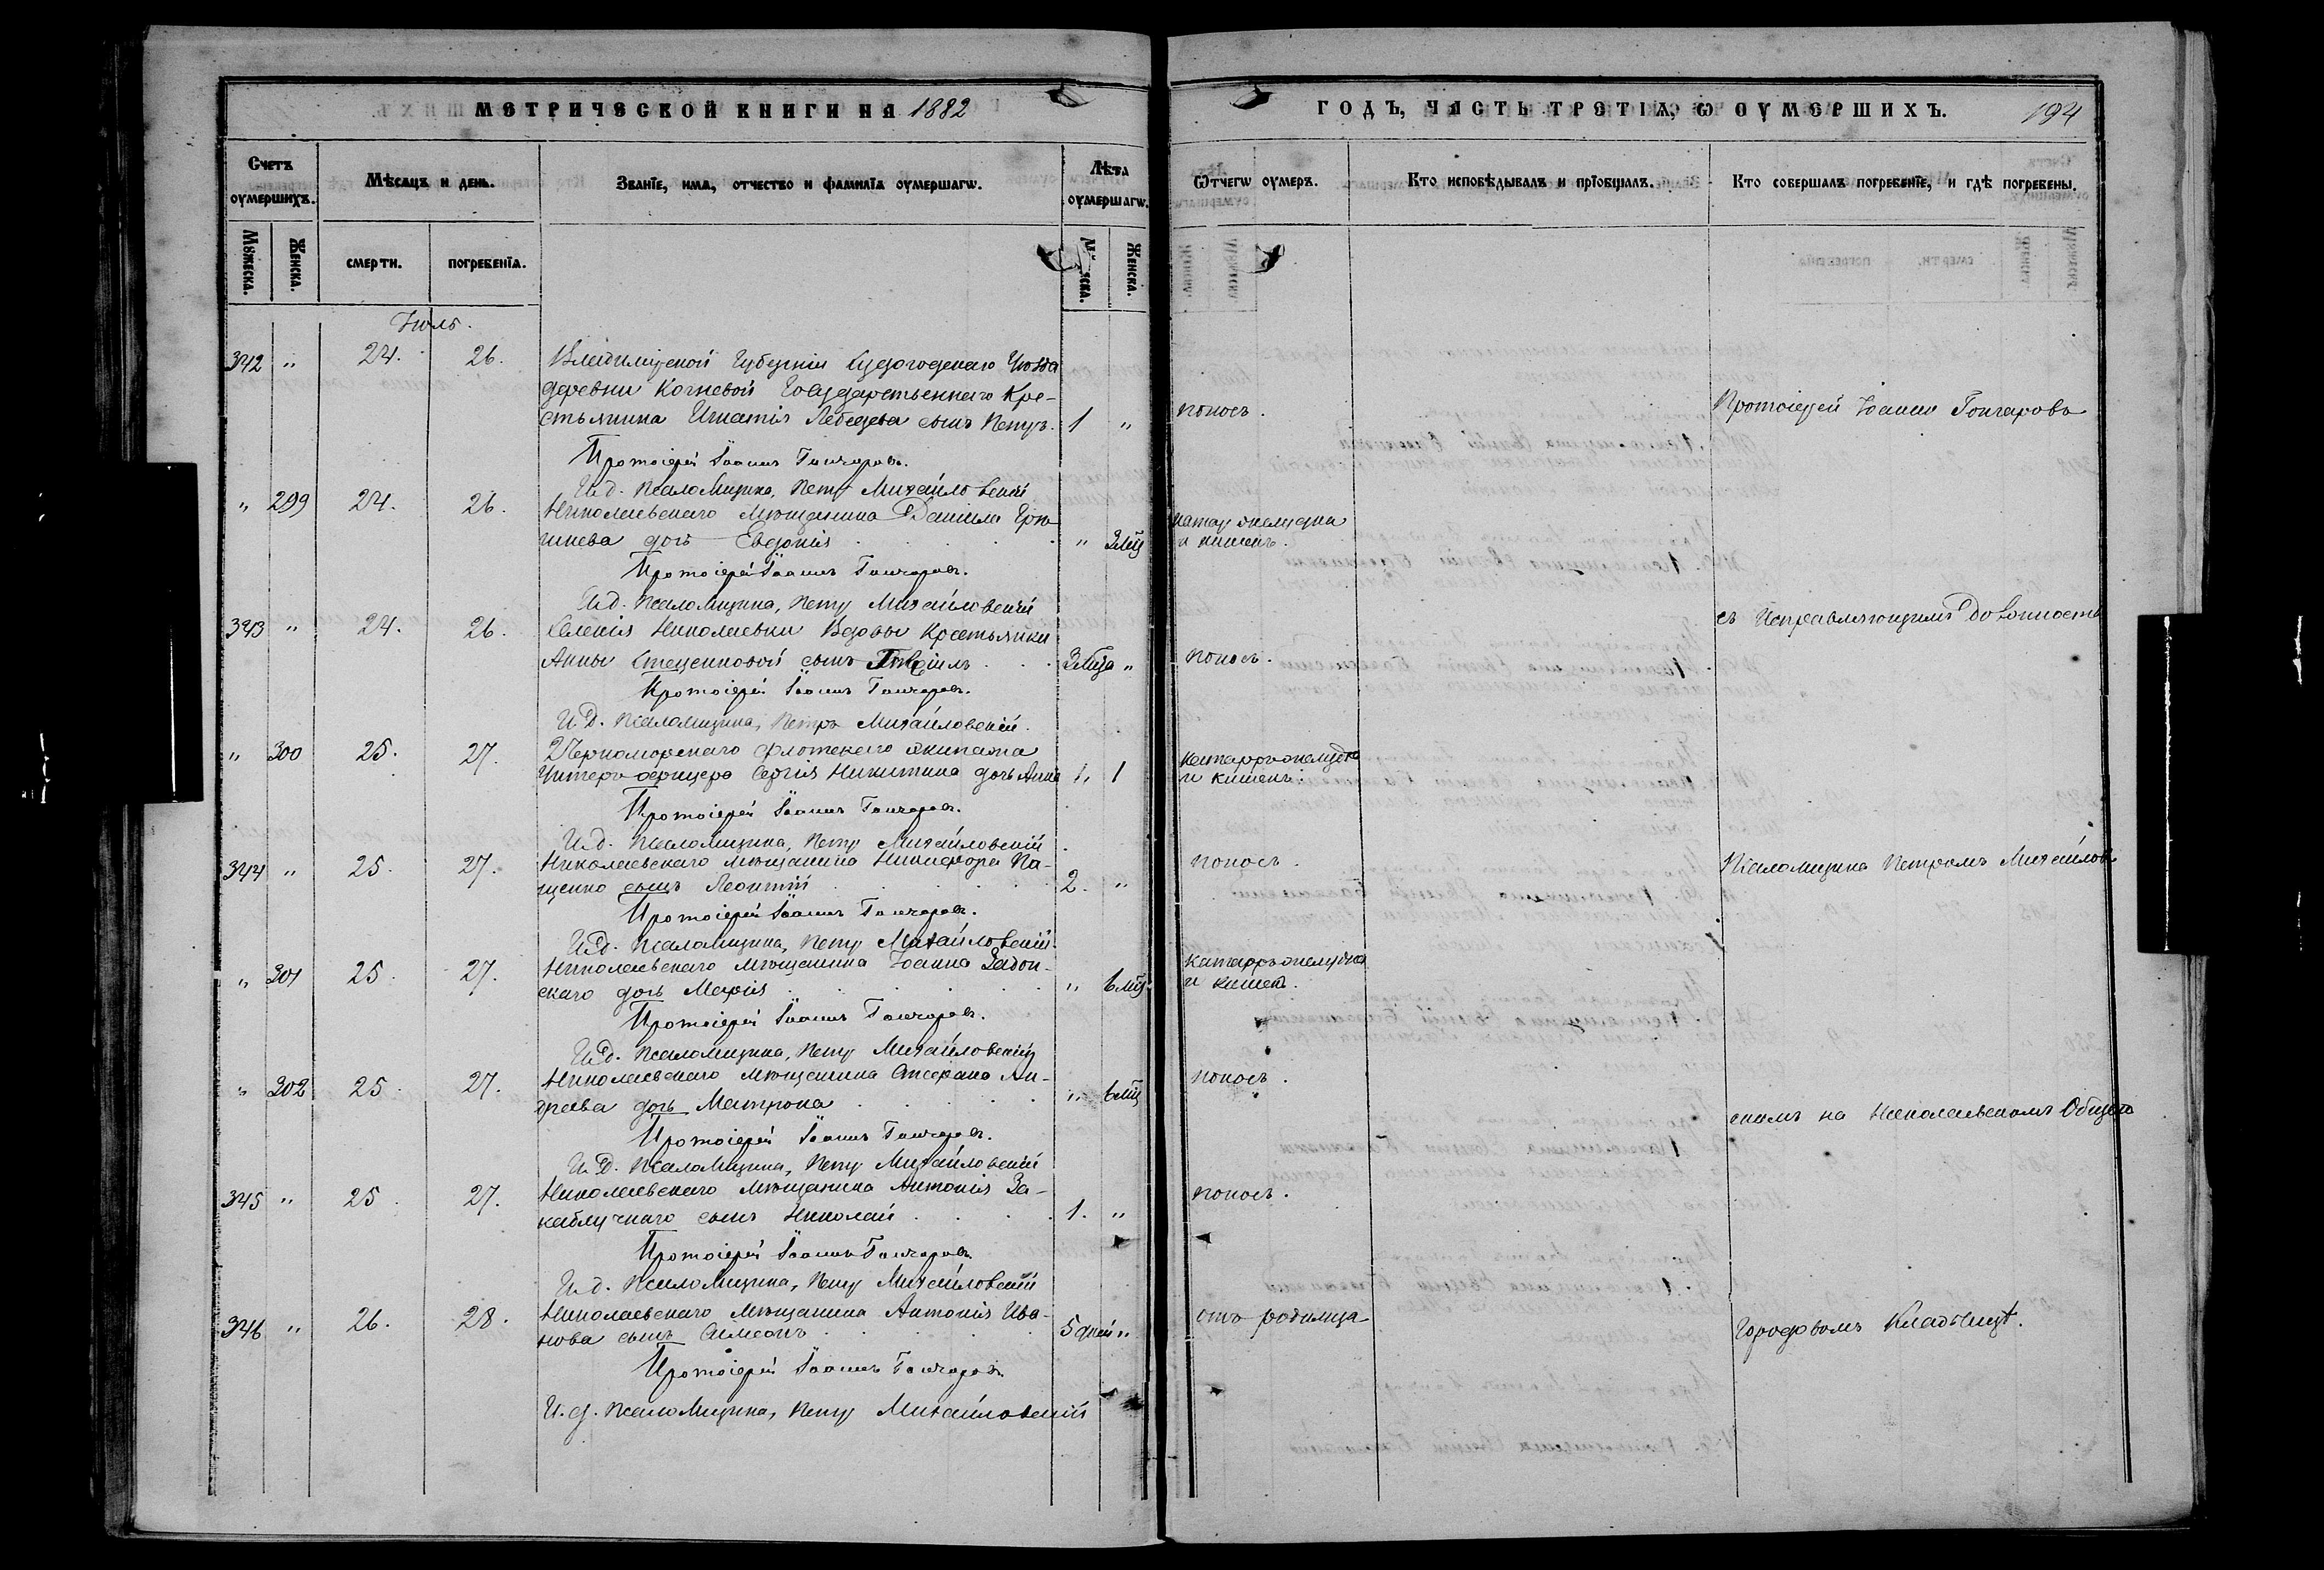 МЕТРИЧЕСКОЙ КНИГИ НА 1882
ГОДЪ, ЧАСТЬ ТРЕТІЯ, Ѡ ОУМЕРШИХЪ.
194
Счетъ оумершихъ.
Мѣсяцъ и день.
Званіе, имя, отчество и фамилія оумершагѡ.
Лѣта оумершагѡ.
Ѿчегѡ оумеръ.
Кто исповѣдывалъ и пріобщалъ.
Кто совершалъ погребеніе, и гдѣ погребены.
Мужеска.
Женска.
смерти.
погребенія.
Женска.
Іюль.
342 " 24. 26. Владимірской Губерніи Судогодскаго Уѣзда
деревни Кочневой Государственнаго Кре-
стьянина Игнатія Лебедева сынъ Петръ. 1 " поносъ. Протоіерей Іоаннъ Гончаровъ
Протоіерей Іоаннъ Гончаровъ.
И.д. псаломщика, Петръ Михайловскій
" 299 24. 26. Николаевскаго мѣщанина Даніила
дочь Евдокія " 3 мѣс катар желудка
и кишекъ.
Протоіерей Іоаннъ Гончаровъ.
И.д. псаломщика, Петръ Михайловскій
343 " 24. 26. Николаевки Вдовы Крестьянки съ Исправляющимъ Должность
Анны Стеценковой сынъ 3 мѣс " поносъ.
Протоіерей Іоаннъ Гончаровъ.
И.д. псаломщика, Петръ Михайловскій.
" 300 25. 27. Черноморскаго флотскаго экипажа
Унтеръ-офицера Сергія Никитина дочь Анна " 1 катарръ желудка
и кишекъ.
Протоіерей Іоаннъ Гончаровъ.
И.д. псаломщика, Петръ Михайловскій
344 " 25. 27. Николаевскаго мѣщанина Никифора Па-
щенко сынъ Леонтій 2. " поносъ. Псаломщика Петромъ Михайлов-
Протоіерей Іоаннъ Гончаровъ.
И.д. псаломщика, Петръ Михайловскій
" 301 25. 27. Николаевскаго мѣщанина Іоанна Задон-
скаго дочь Марія " 6 мѣс катарръ желудка
и кишекъ.
Протоіерей Іоаннъ Гончаровъ.
И.д. псаломщика, Петръ Михайловскій
" 302 25. 27. Николаевскаго мѣщанина Стефана Ан-
дреева дочь Матрона " 6 мѣс поносъ.
скимъ на Николаевскомъ Общемъ
Протоіерей Іоаннъ Гончаровъ.
И.д. псаломщика, Петръ Михайловскій
345 " 25. 27. Николаевскаго мѣщанина Антонія За-
каблучнаго сынъ Николай 1. " поносъ.
Протоіерей Іоаннъ Гончаровъ
И.д. псаломщика, Петръ Михайловскій
346 " 26. 28. Николаевскаго мѣщанина Антонія Ива-
нова сынъ Симеонъ 5 дней " отъ родимца
Городовомъ Кладбищѣ.
Протоіерей Іоаннъ Гончаровъ
И.д. псаломщика, Петръ Михайловскій